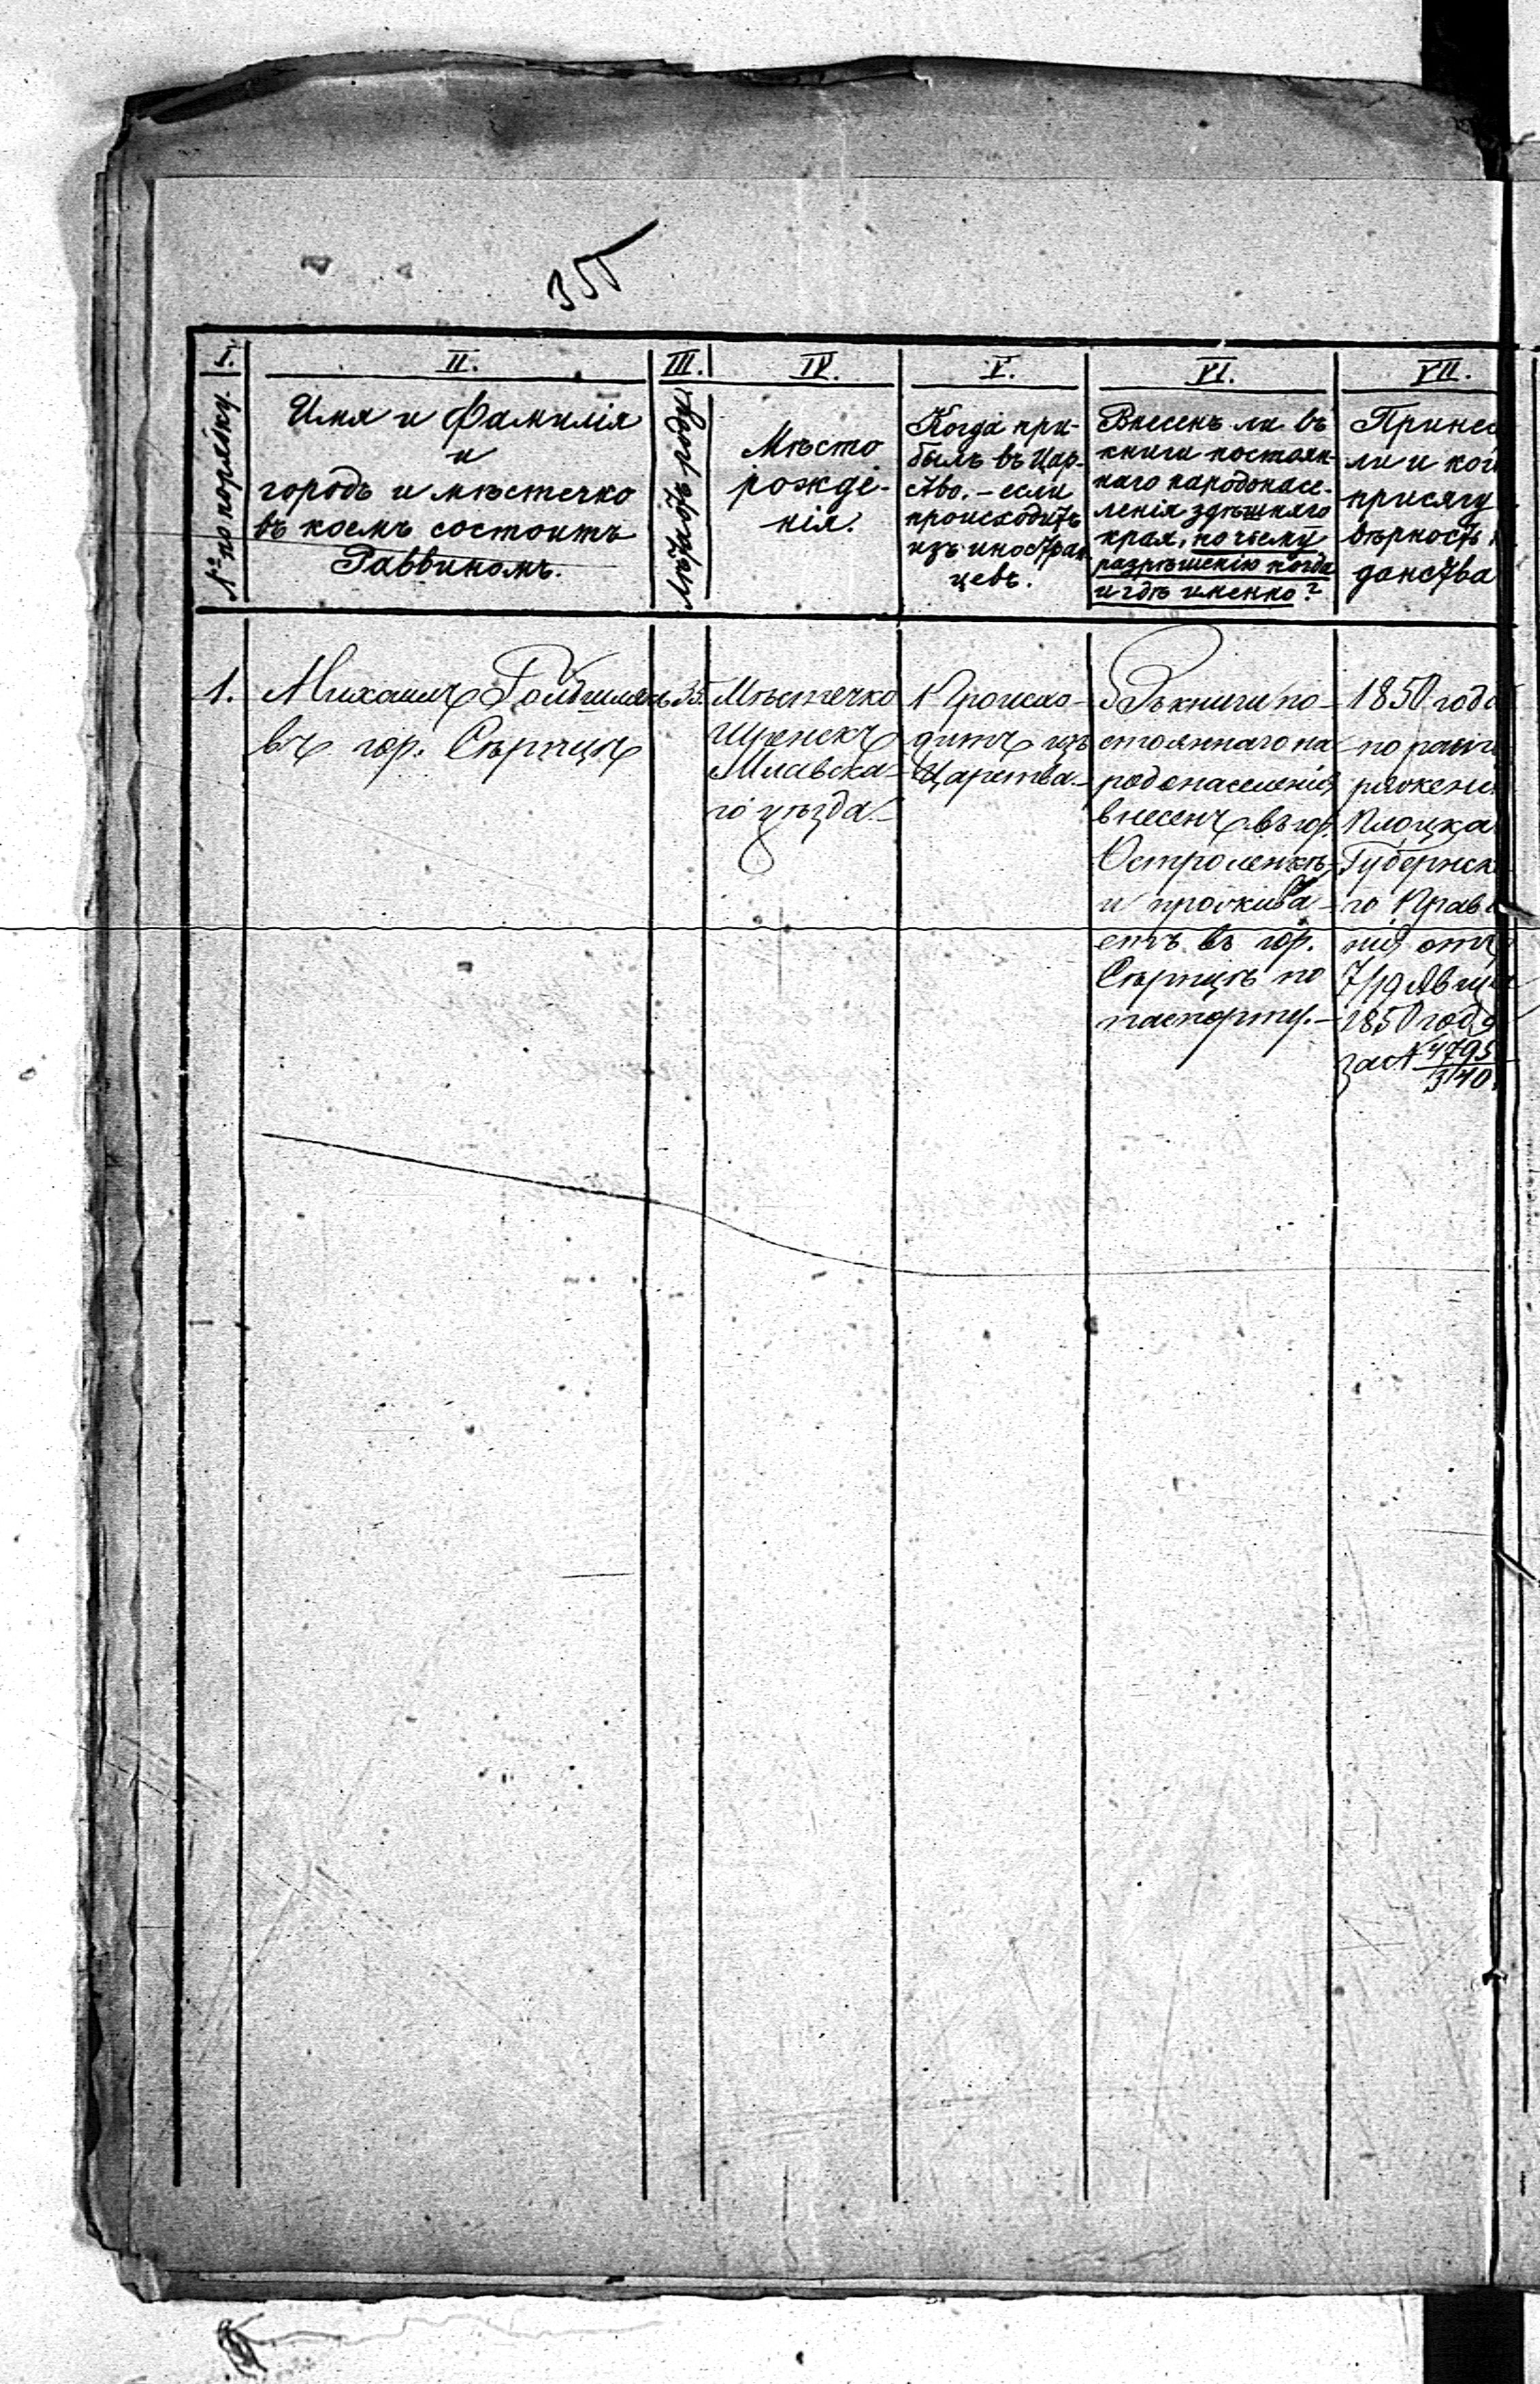 355
I.
№ по порядку.
II.
Имя и Фамилія
и
городъ и мѣстечко
въ коемъ состоитъ
Раввиномъ.
III.
Лѣта отъ роду.
IV.
Мѣсто
рожде-
нія.
V.
Когда при-
былъ въ Цар-
ство. – если
происходитъ
изъ иностран-
цевъ.
VI.
Внесенъ ли въ
книги постоян-
наго народонасе-
ленія здѣшняго
края, по чьему
разрѣшенію когда
и гдѣ именно?
VII.
Принес
ли и ког
присягу
вѣрность
данства
1.
Михаилъ Гольдшлакъ
въ гор. Серпцѣ
35.
Мѣстечко
Шренскъ
Млавска-
го уѣзда. –
Происхо-
дитъ изъ
Царства. –
Въ книги по-
стояннаго на-
родонаселенія
внесенъ въ гор.
Остроленкѣ
и прожива-
етъ въ гор.
Серпцѣ по
паспорту. –
1850 года
по распо
ряжені
Плоцка
Губернск
го Правл
нія отъ
7/19 Авгус
1850 года
за № 4795
3140